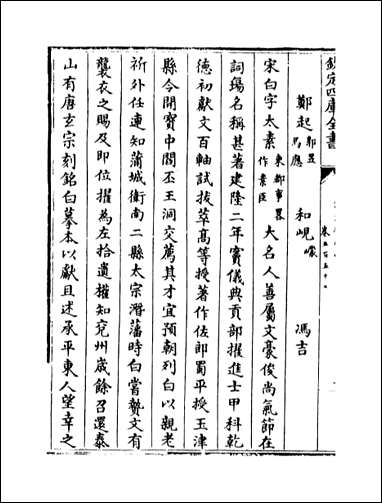 欽定四庫全書
鄭起 郭昱 馬應 和峴 㠓 馮吉
宋白字太素東都事畧作素臣大名人善屬文豪俊尚氣節在
詞塲名稱甚著建隆二年竇儀典貢部擢進士甲科乾
德初獻文百軸試拔萃高等授著作佐郎蜀平授玉津
縣令開寶中閻丕王洞交薦其才宜預朝列白以親老
祈外任連知蒲城衛南二縣太宗潛藩時白嘗贄文有
襲衣之賜及即位擢為左拾遺權知兗州歳餘召還泰
山有唐玄宗刻銘白摹本以獻且述承平東人望幸之